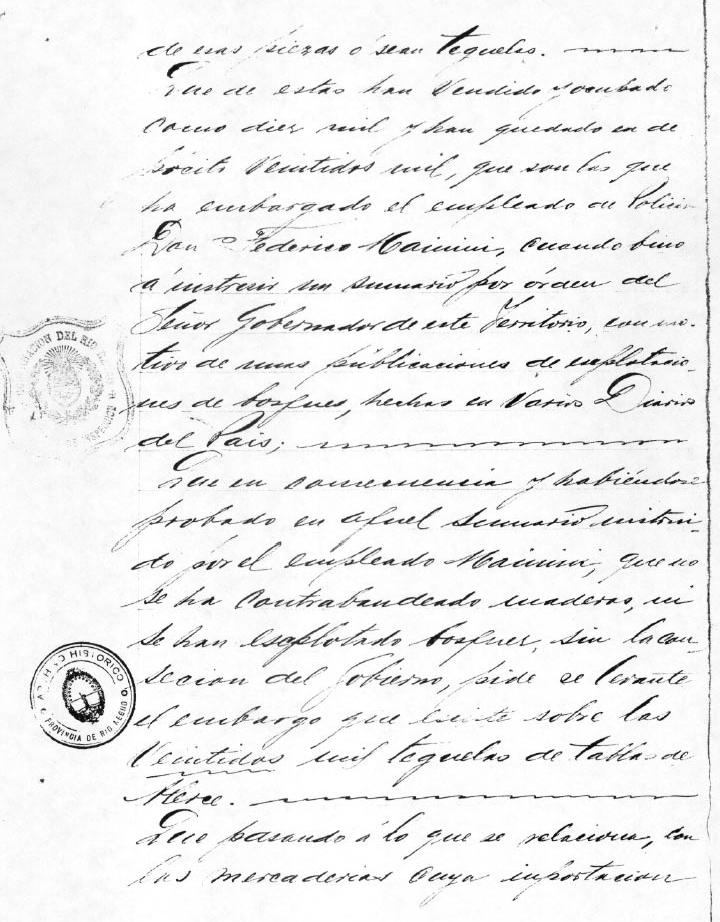 de esas piezas ó sean tequelas.
Que de estas han vendido y ocubado
como diez mil y han quedado en de
pócito veintidos mil, que son las que
ha embargado el empleado de Policia
Don Federico Mainini, cuando bino
á instruir un sumario por órden del
Señor Gobernador de este Territorio, con mo-
tivo de unas publicaciones de esplotacio-
nes de bosques, hechas en Varios Diarios
del Pais;
Que en consecuencia y habiéndose
probado en aquel sumario instrui-
do por el empleado Mainini, que no
se ha contrabandeado maderas, ni
se han esplotado bosques, sin la con-
secion del Gobierno, pide se levante
el embargo que eciste sobre las
Veintidos mil tequelas de tablas de
Alerce.
Que pasando á lo que se relaciona, con
las mercaderias cuya importacion
GOBERNACION DEL RIO N
ARCHIVO HISTORICO
PROVINCIA DE RIO NEGRO